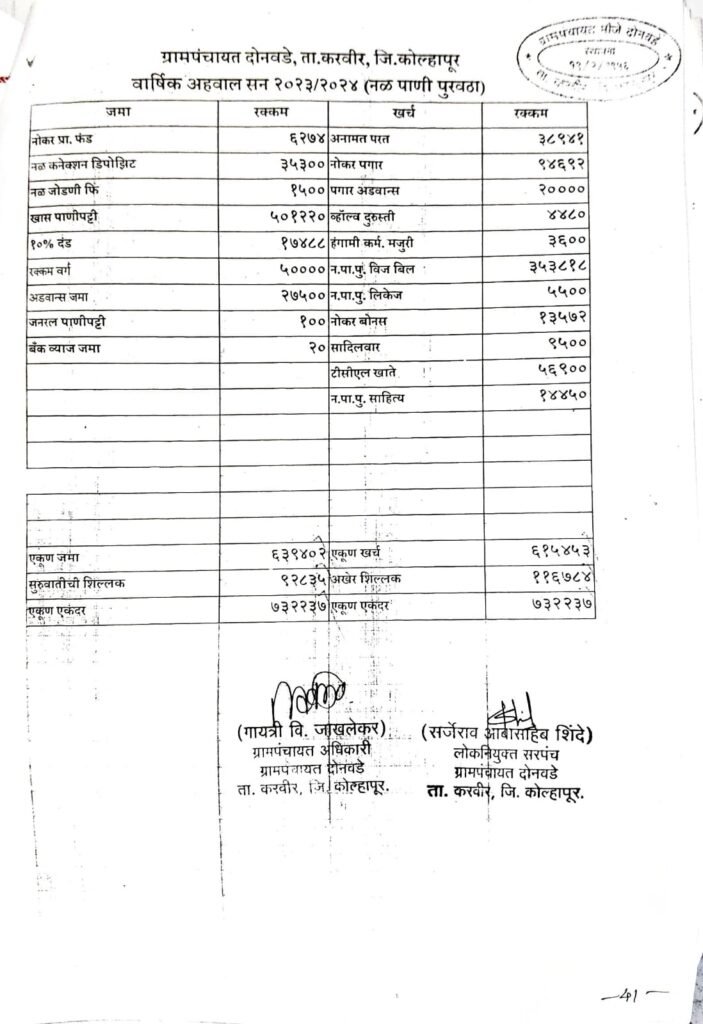 ग्रामपंचायत मौजे दोनवडे
स्थापना
ग्रामपंचायत दोनवडे, ता.करवीर, जि.कोल्हापूर
वार्षिक अहवाल सन २०२३/२०२४ (नळ पाणी पुरवठा)
जमा रक्कम खर्च रक्कम
नोकर प्रा. फंड ६२७४ अनामत परत ३८९४१
नळ कनेक्शन डिपोझिट ३५३०० नोकर पगार ९४६९२
नळ जोडणी फि १५०० पगार अडवान्स २००००
खास पाणीपट्टी ५०१२२० व्हॉल्व दुरुस्ती ४४८०
१०% दंड १७४८८ हंगामी कर्म. मजुरी ३६००
रक्कम वर्ग ५०००० न.पा.पु. विज बिल ३५३८१८
अडवान्स जमा २७५०० न.पा.पु. लिकेज ५५००
जनरल पाणीपट्टी १०० नोकर बोनस १३५७२
बँक व्याज जमा २० सादिलवार ९५००
टीसीएल खाते ५६९००
न.पा.पु. साहित्य १४४५०
एकूण जमा ६३९४०२ एकूण खर्च ६१५४५३
सुरुवातीची शिल्लक ९२८३५ अखेर शिल्लक ११६७८४
एकूण एकंदर ७३२२३७ एकूण एकंदर ७३२२३७
(गायत्री वि. जाखलेकर) (सर्जेराव आबासाहेब शिंदे)
ग्रामपंचायत अधिकारी लोकनियुक्त सरपंच
ग्रामपंचायत दोनवडे ग्रामपंचायत दोनवडे
ता. करवीर, जि. कोल्हापूर. ता. करवीर, जि. कोल्हापूर.
-41-